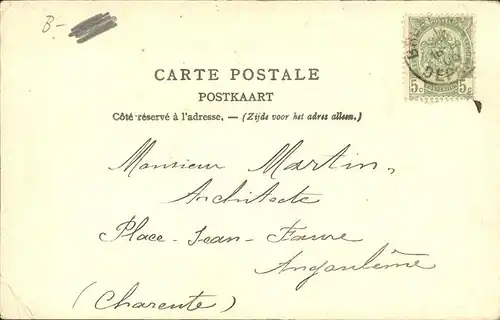 B-
CARTE POSTALE
POSTKAART
Côté réservé à l'adresse. — (Zijde voor het adres alleen.)
Monsieur Martin,
Architecte
Place-Jean-Faure
Angoulême
(Charente)
5c 5c
DEP